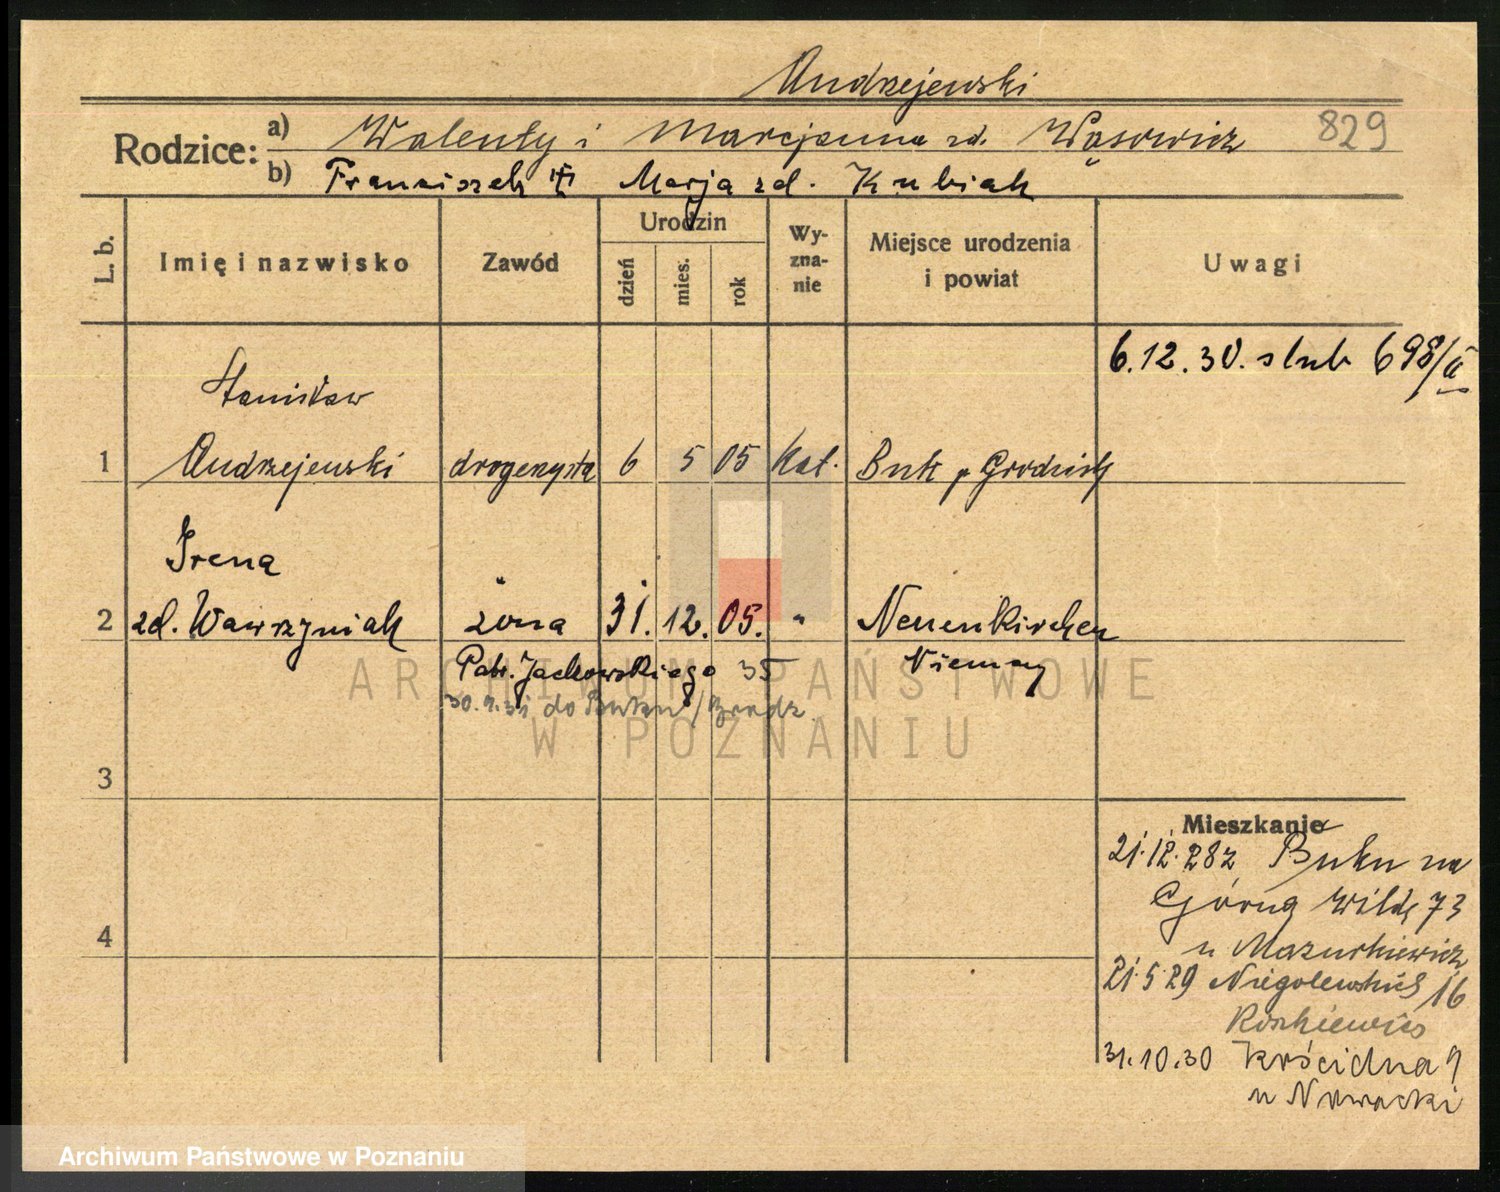 Andrzejewski
829
Rodzice: a) Walenty i Marcjanna zd. Wąsowicz
b) Franciszek Marja zd. Kubiak
L. b.
Imię i nazwisko
Zawód
Urodzin
dzień
mies.
rok
Wy-
zna-
nie
Miejsce urodzenia
i powiat
Uwagi
6.12.30. slub 698/II
Stanisław
1 Andrzejewski drogerzysta 6 5 05 Kat. Buk p Grodzisk
Irena
2 zd. Wawrzyniak żona 31. 12. 05. " Neuenkirchen
Patr. Jackowskiego 35 Niemcy
30.9.31 do Buku /Grodz.
3
4
Mieszkanie
21.12.28 z Buku na
Górną Wildę 73
u Mazurkiewicz
21.5.29 Niegolewskich 16
31.10.30 9
u Nowacki
ARCHIWUM PAŃSTWOWE
W POZNANIU
Archiwum Państwowe w Poznaniu